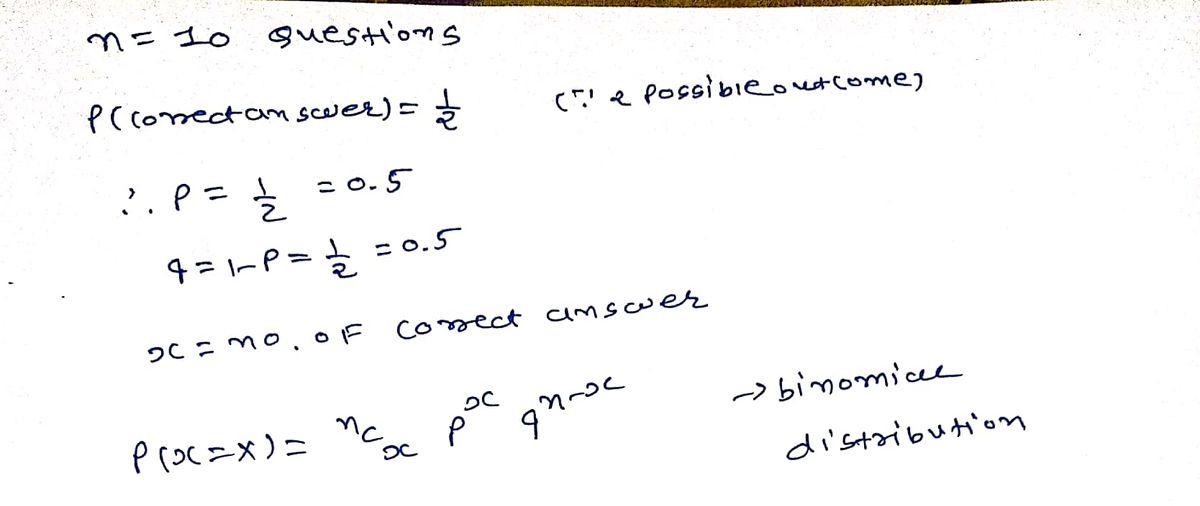 n = 10 questions
P(correct answer) = 1/2 (∵ 2 possible outcome)
∴ P = 1/2 = 0.5
q = 1-P = 1/2 = 0.5
x = no. of correct answer
P(x=X) = ⁿCₓ pˣ qⁿ⁻ˣ → binomial
distribution